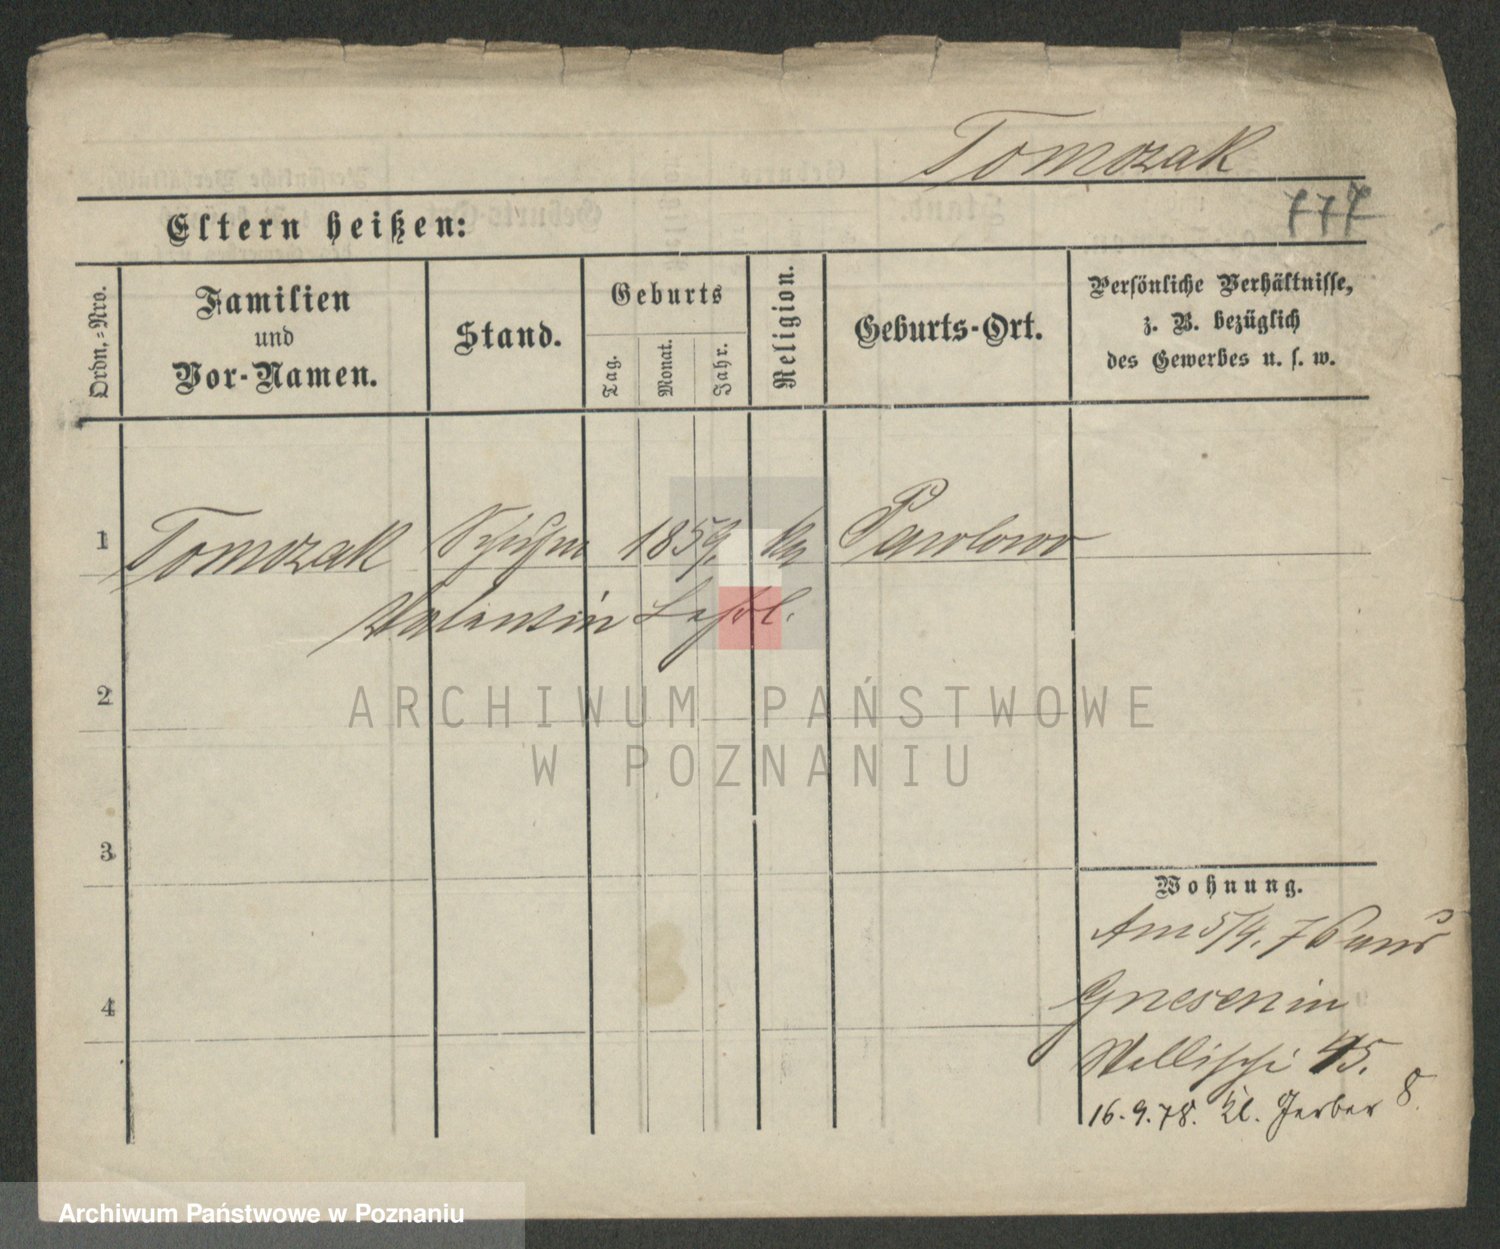 Tomczak
777
Eltern heißen:
Ordn.-Nro.
Familien
und
Vor-Namen.
Stand.
Geburts
Tag.
Monat.
Jahr.
Religion.
Geburts-Ort.
Persönliche Verhältnisse,
z. B. bezüglich
des Gewerbes u. s. w.
1 Tomczak 1859. Pawlowo
Valentin
2
ARCHIWUM PAŃSTWOWE
W POZNANIU
3
Wohnung.
Am 5/4. 76 aus
Gnesen in
4
Wallischei 45.
16.9.78. Kl. Gerber 8.
Archiwum Państwowe w Poznaniu